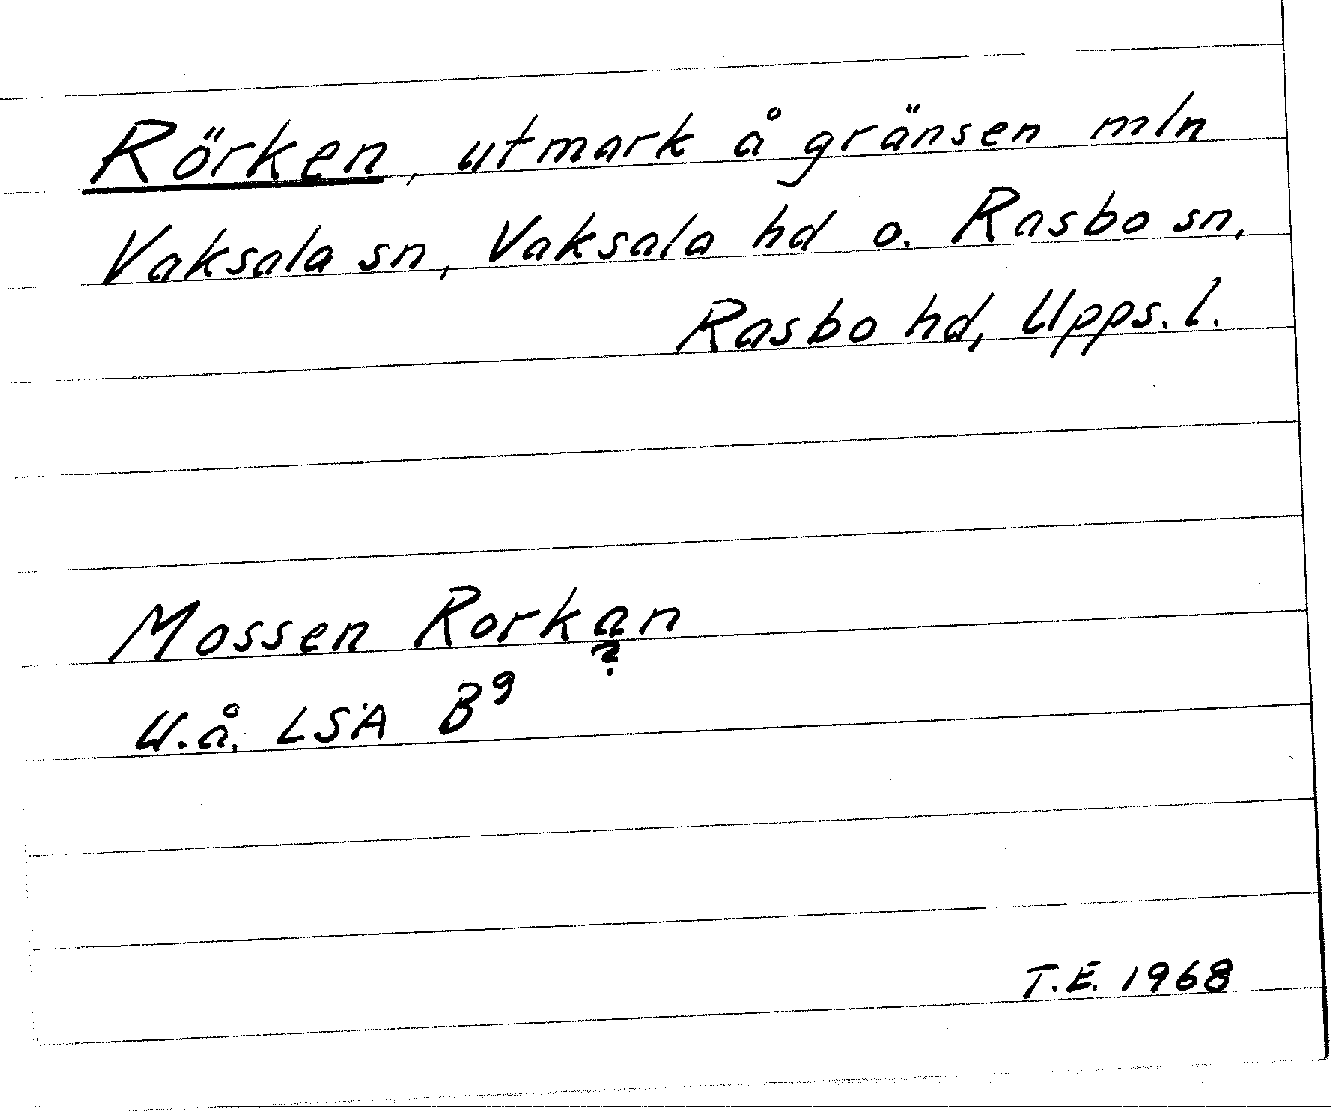 Rörken, utmark å gränsen mln
Vaksala sn, Vaksala hd o. Rasbo sn,
Rasbo hd, Upps. l.
Mossen Rorkan
?
U.å. LSA B⁹
T.E. 1968